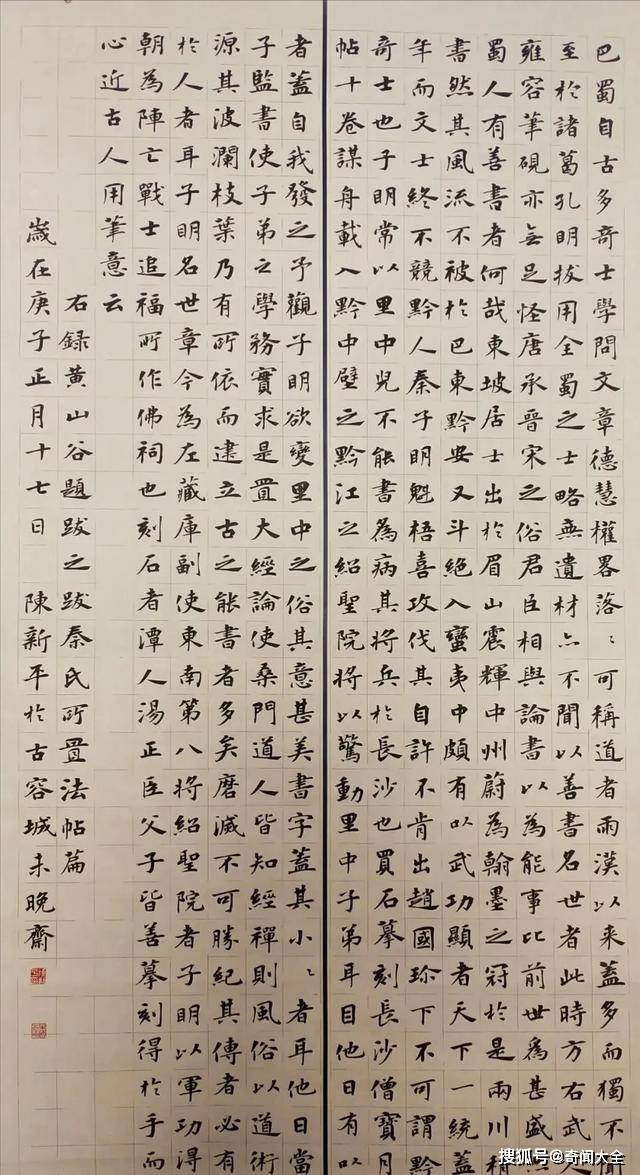 巴蜀自古多奇士學問文章德慧權畧落〻可稱道者兩漢以來蓋多而獨不聞
至於諸葛孔明拔用全蜀之士略無遺材亦不聞以善書名世者此時方右武
雍容筆硯亦無足怪唐承晉宋之俗君臣相與論書以為能事比前世為甚盛
蜀人有善書者何哉東坡居士出於眉山震輝中州蔚為翰墨之冠於是兩川稍
書然其風流不被於巴東黔安又斗絕入蠻夷中頗有以武功顯者天下一統蓋
年而文士終不競黔人秦子明魁梧喜攻伐其自許不肯出趙國珍下不可謂黔
奇士也子明常以里中兒不能書為病其將兵於長沙也買石摹刻長沙僧寶月
帖十卷謀舟載入黔中壁之黔江之紹聖院將以驚動里中子弟耳目他日有以
者蓋自我發之予觀子明欲變里中之俗其意甚美書字蓋其小〻者耳他日當
子監書使子弟之學務實求是置大經論使桑門道人皆知經禪則風俗以道術
源其波瀾枝葉乃有所依而建立古之能書者多矣磨滅不可勝紀其傳者必有
於人者耳子明名世章今為左藏庫副使東南第八將紹聖院者子明以軍功得
朝為陣亡戰士追福所作佛祠也刻石者潭人湯正臣父子皆善摹刻得於手而
心近古人用筆意云
右錄黃山谷題跋之跋秦氏所置法帖篇
歲在庚子正月十七日 陳新平於古容城未晚齋
搜狐号@奇闻大全